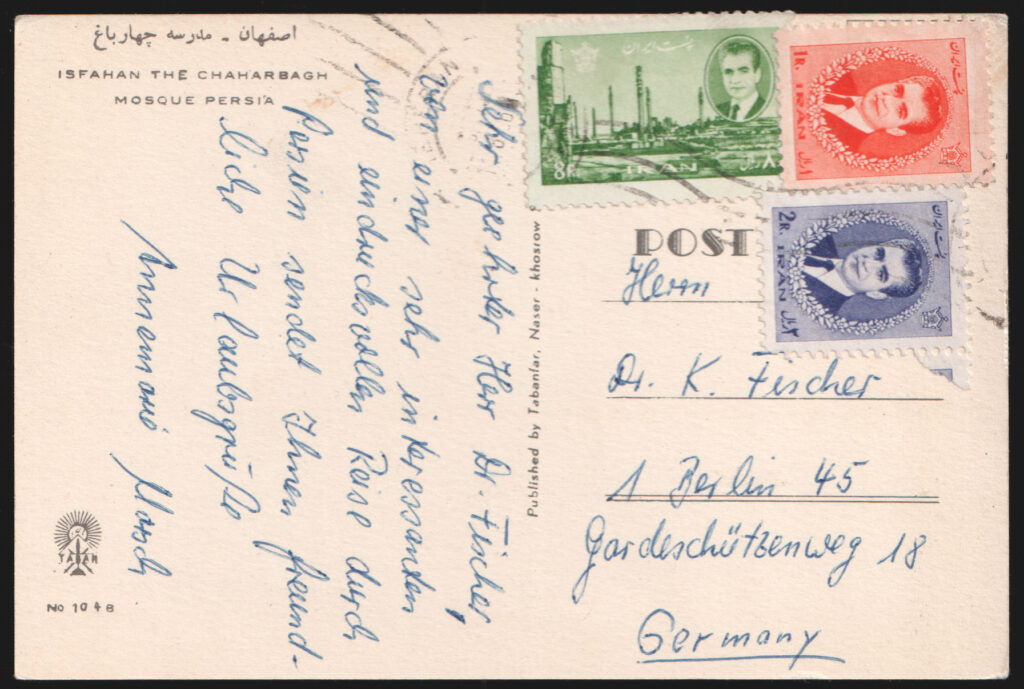 اصفهان - مدرسه چهارباغ
ISFAHAN THE CHAHARBAGH
MOSQUE PERSIA
Sehr geehrter Herr Dr. Fischer,
von einer sehr interessanten
und eindrucksvollen Reise durch
Persien sendet Ihnen freund-
liche Urlaubsgrüße
Annemarie
TABAN
No 104 B
Published by Tabanfar, Naser - khosrow
پست ایران
8R
IRAN
۸ ریال
1R.
IRAN
۱ ریال
پست ایران
2R.
IRAN
۲ ریال
پست ایران
POST
Herrn
Dr. K. Fischer
1 Berlin 45
Gardeschützenweg 18
Germany